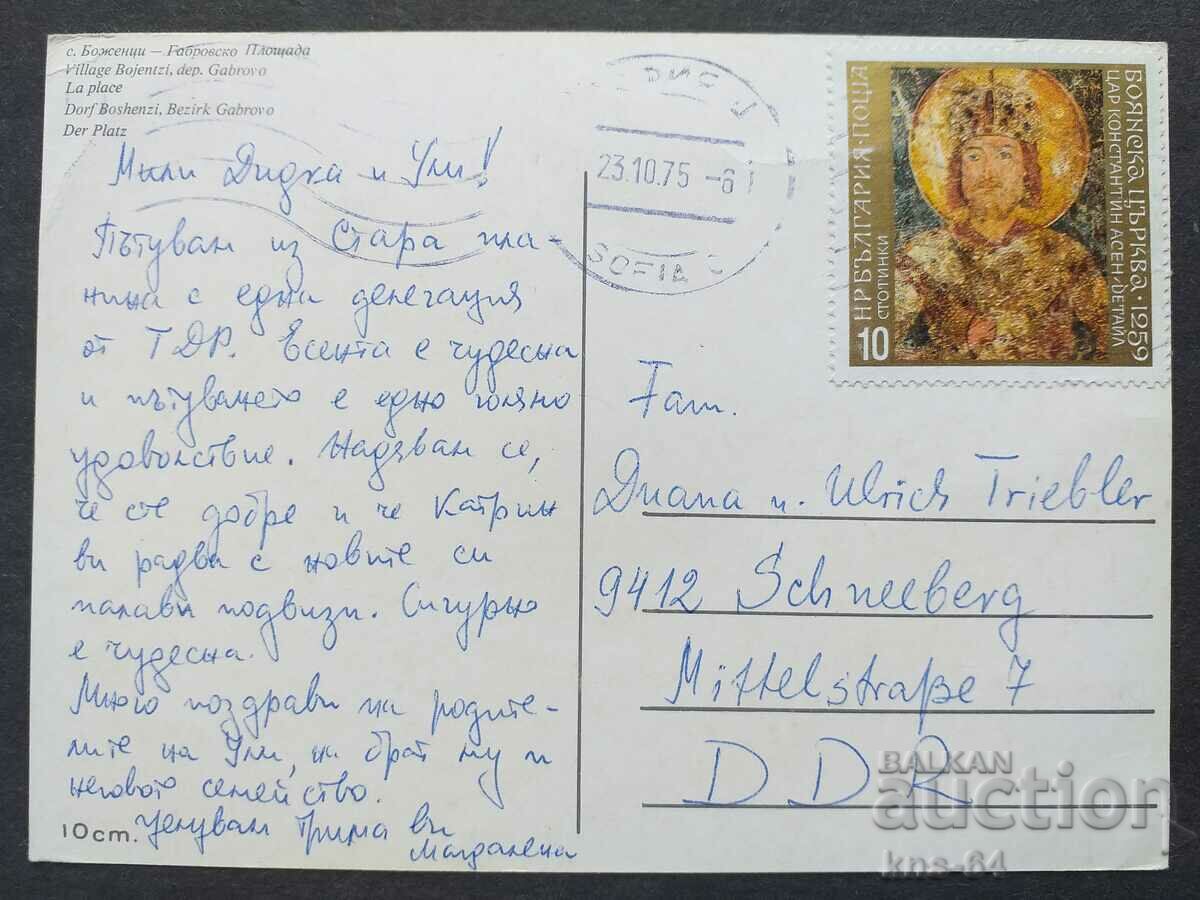 с. Боженци — Габровско Площада
Village Bojentzi, dep. Gabrovo
La place
Dorf Boshenzi, Bezirk Gabrovo
Der Platz
Мили Дидка и Ули!
Пътувам из Стара пла-
нина с една делегация
от ГДР. Есента е чудесна
и пътуването е едно голямо
удоволствие. Надявам се,
че сте добре и че Катрин
ви радва с новите си
палави подвизи. Сигурно
е чудесна.
Много поздрави на родите-
лите на Ули, на брат му и
неговото семейство.
Целувам трима ви
Магдалена
10 cm.
23.10.75 -6
SOFIA
НР БЪЛГАРИЯ·ПОЩА
СТОТИНКИ
10
БОЯНСКА ЦЪРКВА·1259
ЦАР КОНСТАНТИН АСЕН·DЕТАЙЛ
Fam.
Diana u. Ulrich Triebler
9412 Schneeberg
Mittelstraße 7
DDR
BALKAN
auction
kns-64